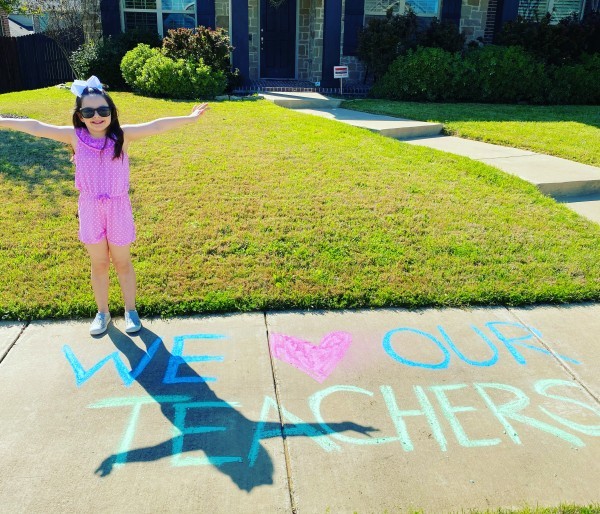 WE ♥ OUR
TEACHERS